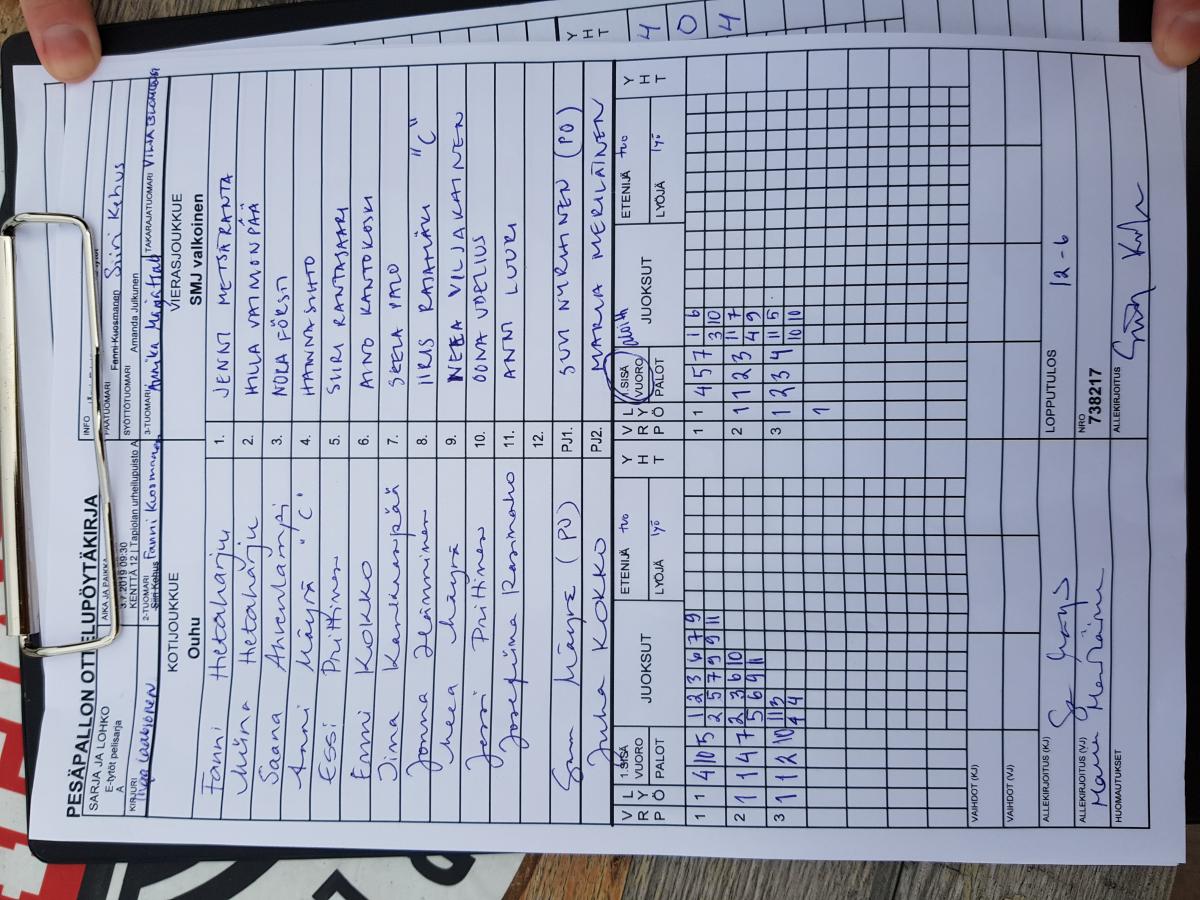 PESÄPALLON OTTELUPÖYTÄKIRJA
SARJA JA LOHKO
E-tytöt pelisarja
A
AIKA JA PAIKKA
3.7.2019 09:30
KENTTÄ 12 | Tapiolan urheilupuisto A
INFO
PÄÄTUOMARI Fanni Kuosmanen Siiri Kehus
SYÖTTÖTUOMARI Amanda Julkunen
KIRJURI
2-TUOMARI Siiri Kehus Fanni Kuosmanen
3-TUOMARI Annika
TAKARAJATUOMARI VILJA
KOTIJOUKKUE
Ouhu
VIERASJOUKKUE
SMJ valkoinen
Fanni Hietaharju 1. JENNI METSÄRANTA
Miina Hietaharju 2. HILLA VAITMONPÄÄ
Saana Ahvenlampi 3. NORA FÖRSTI
Anni Mäyrä "C" 4. HANNA SIHTO
Essi Prittinen 5. SIIRI RANTASAARI
Emni KOKKO 6. AINO KANTOKOSKI
Iina Kankaanpää 7. SEELA PALO
Jonna Hänninen 8. IIRIS RAJAMÄKI "C"
Neea Mäyrä 9. NEEA VILJAKAINEN
Jessi Prittinen 10. OONA UDELIUS
Josefiina 11. ANNI LUURI
12.
Mäyrä (PO) PJ1. SUVI NYKÄNEN (PO)
Juha KOKKO PJ2. MARIA MERILÄINEN
V R L Y Ö P 1.SISÄ VUORO PALOT JUOKSUT ETENIJÄ tuo LYÖJÄ lyö Y H T V R L Y Ö P 1.SISÄ VUORO PALOT JUOKSUT ETENIJÄ tuo LYÖJÄ lyö Y H T
1 1 4 10 5 1 2 3 6 7 9 1 1 4 5 7 1 6
2 5 7 9 9 11 3 10
2 1 1 4 7 2 3 6 10 2 1 1 2 3 11 7
5 6 9 11 4 9
3 1 1 2 10 11 3 3 1 2 3 4 11 5
4 4 10 10
1
VAIHDOT (KJ)
VAIHDOT (VJ)
ALLEKIRJOITUS (KJ)
LOPPUTULOS 12-6
ALLEKIRJOITUS (VJ) Maria Meriläinen
NRO
738217
HUOMAUTUKSET
ALLEKIRJOITUS
4
0
4
Y H T